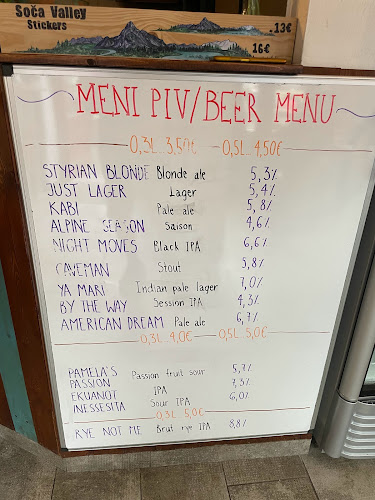 Soča Valley
Stickers
13€
16€
MENI PIV/BEER MENU
0,3L 3,50€ 0,5L 4,50€
STYRIAN BLONDE Blonde ale 5,3%
JUST LAGER Lager 5,4%
KABI Pale ale 5,8%
ALPINE SEASON Saison 4,6%
NIGHT MOVES Black IPA 6,6%
CAVEMAN Stout 5,8%
YA MARI Indian pale lager 7,0%
BY THE WAY Session IPA 4,3%
AMERICAN DREAM Pale ale 6,7%
0,3L 4,0€ 0,5L 5,0€
PAMELA'S Passion fruit sour 5,7%
PASSION
EKUANOT IPA 7,3%
INESSESITA Sour IPA 6,0%
0,3L 5,0€
RYE NOT ME Brut rye IPA 8,8%